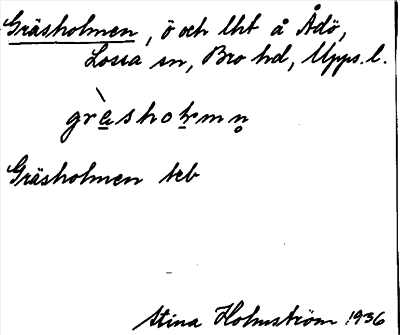 Gräsholmen, ö och lht å Ådö,
Lossa sn, Bro hd, Upps. l.
grèsholmn̥
Gräsholmen teb
Stina Holmström 1936